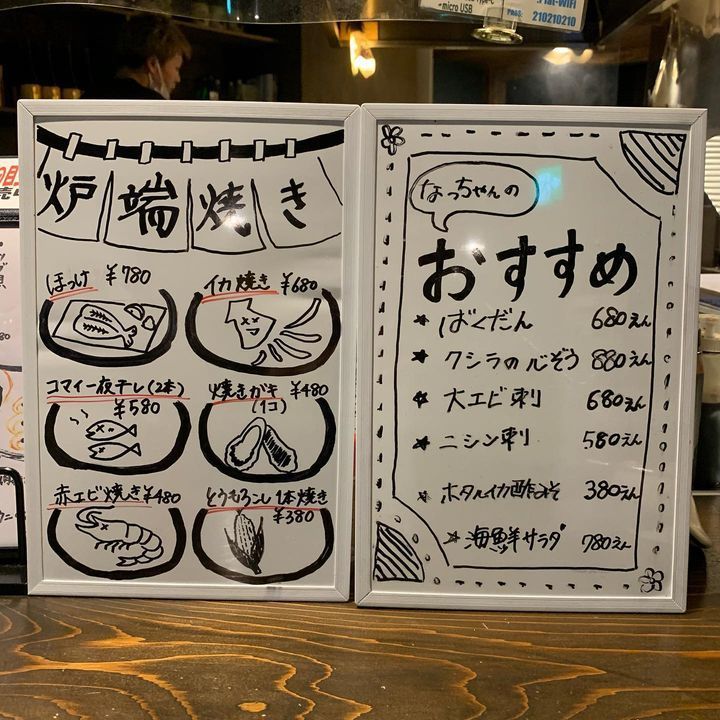 micro USB
PASS: 210210210
炉端焼き
ほっけ ¥780
イカ焼き ¥680
コマイ一夜干し(2本)
¥580
焼きガキ ¥480
(1コ)
赤エビ焼き ¥480
とうもろこし1本焼き
¥380
なっちゃんの
おすすめ
★ ばくだん 680えん
★ クジラの心ぞう 880えん
★ 大エビ刺 680えん
★ ニシン刺 580えん
★ ホタルイカ酢みそ 380えん
★ 海鮮サラダ 780えん